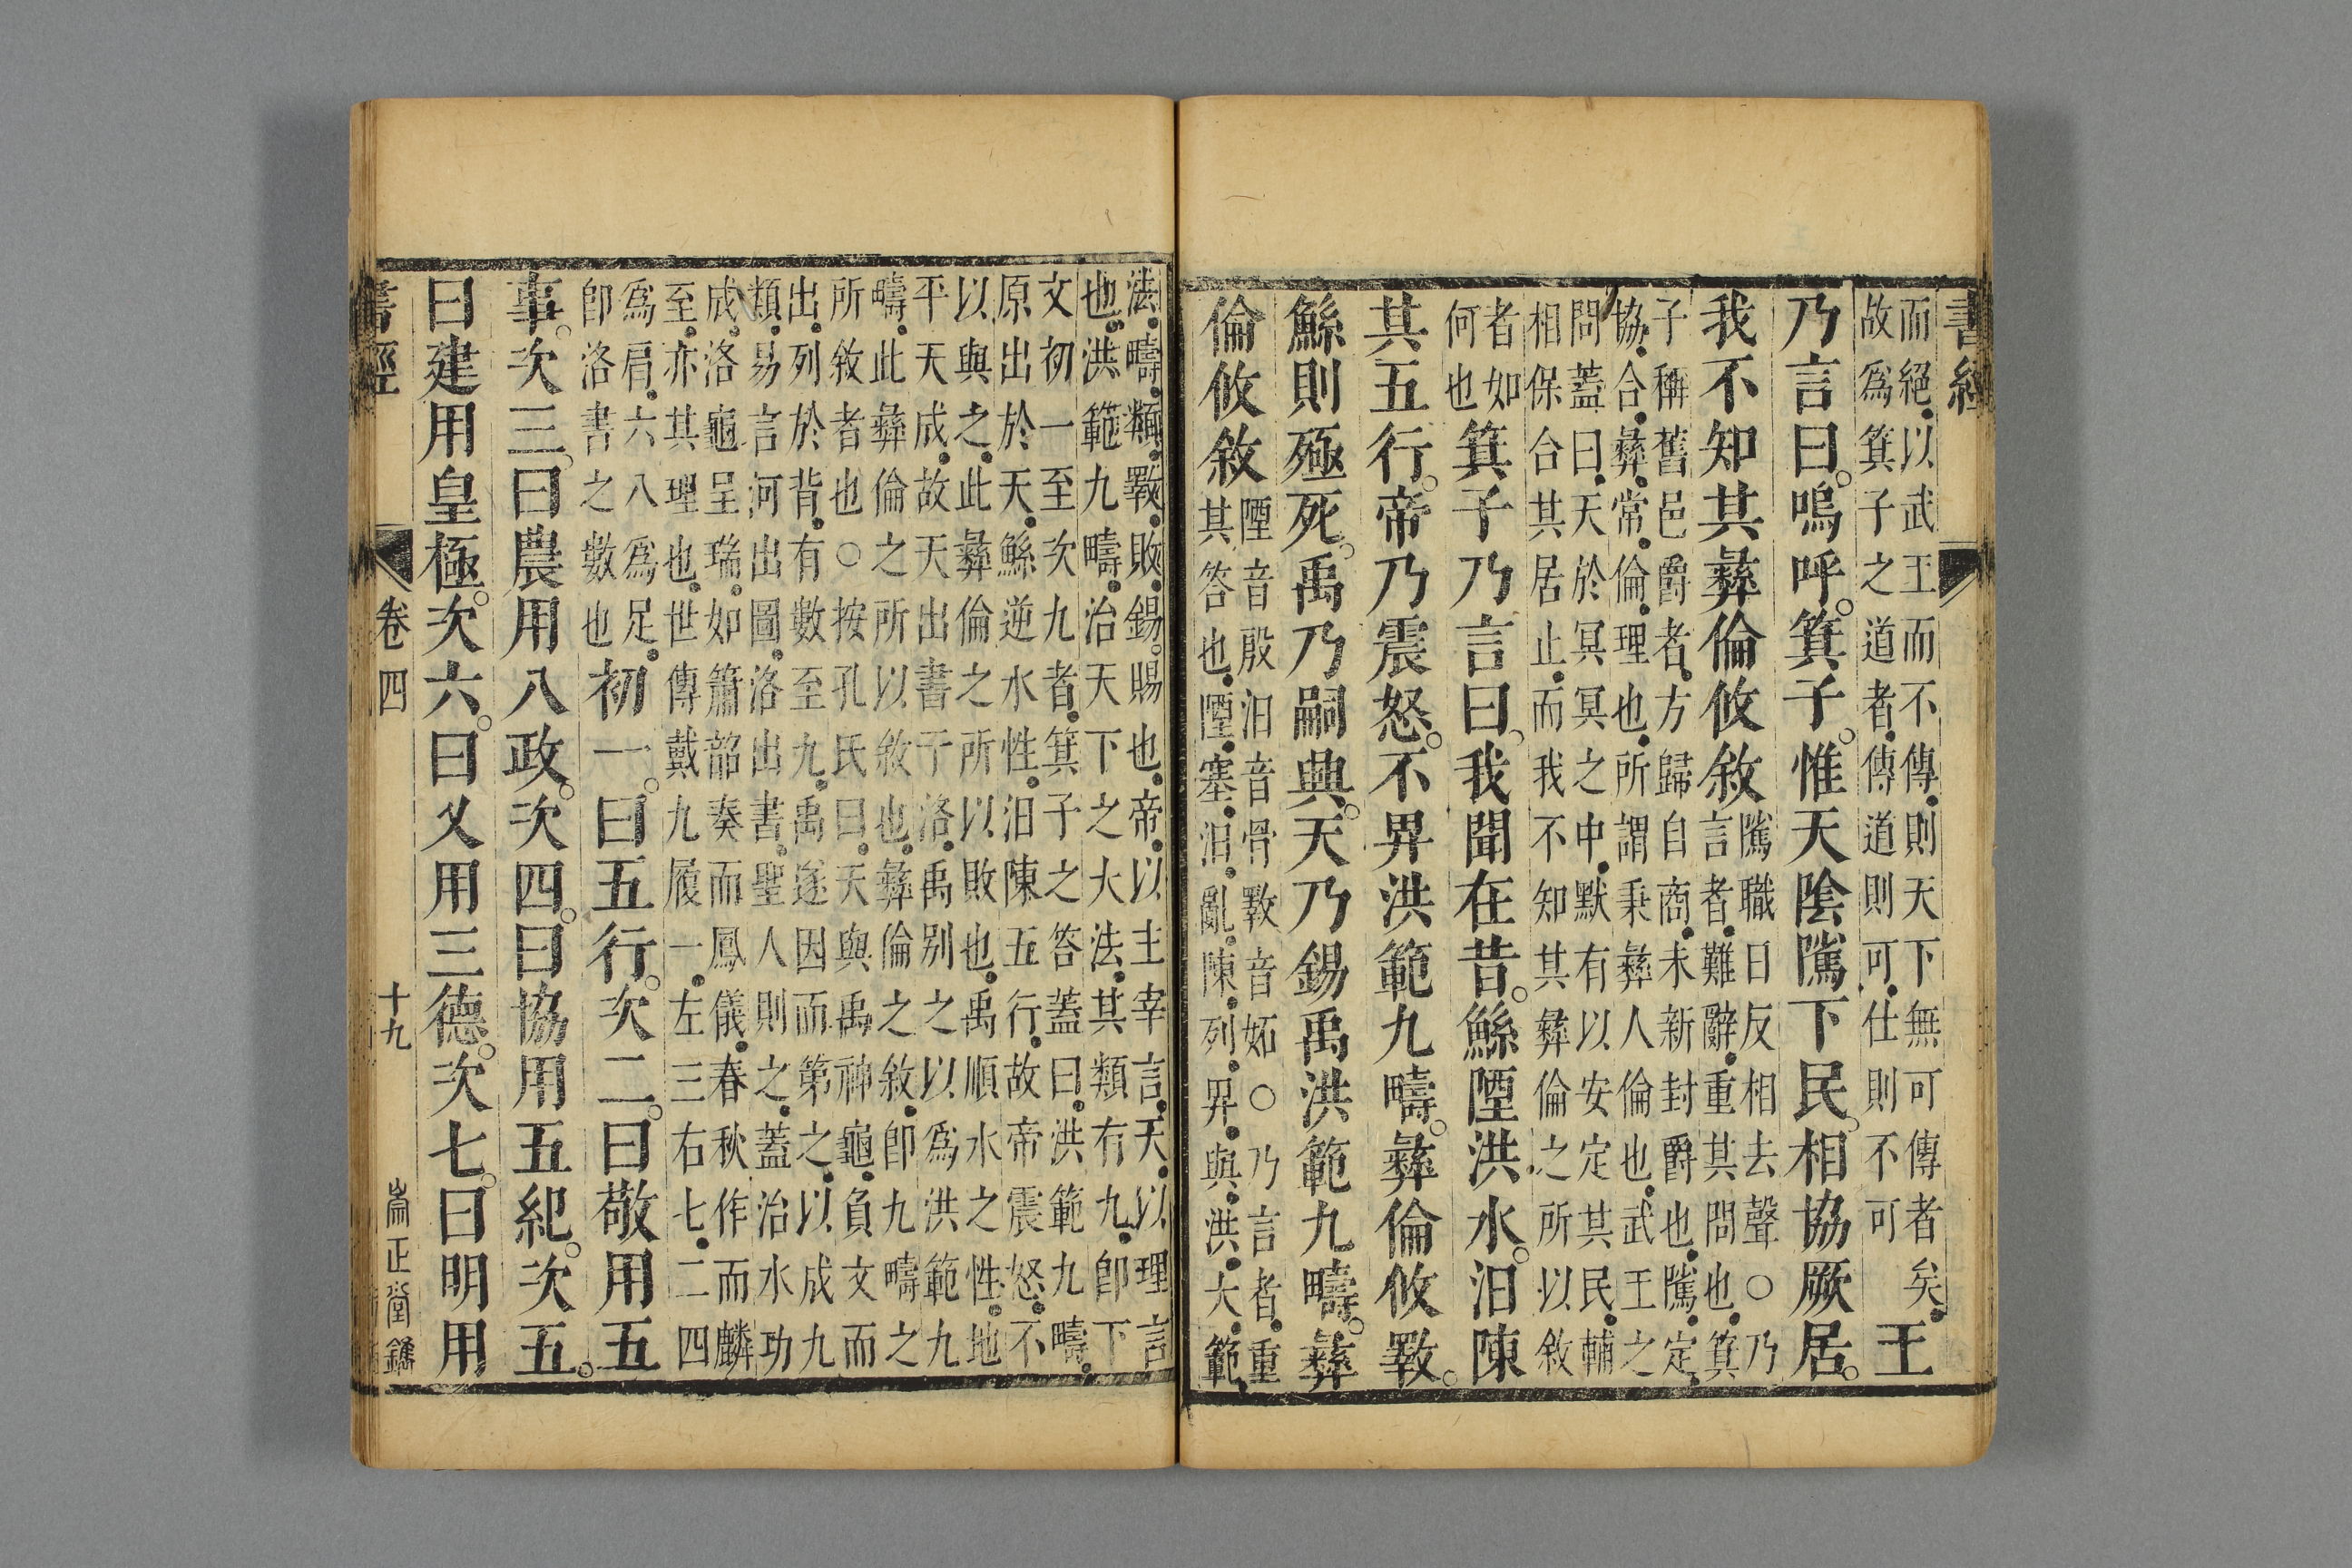 書經
而絕以武王而不傳則天下無可傳者矣
故爲箕子之道者傳道則可仕則不可
王
乃言曰嗚呼箕子惟天陰隲下民相協厥居
我不知其彝倫攸敘
隲職日反相去聲○乃
言者難辭重其問也箕
子稱舊邑爵者方歸自商未新封爵也隲定
協合彝常倫理也所謂秉彝人倫也武王之
問蓋曰天於冥冥之中默有以安定其民輔
相保合其居止而我不知其彝倫之所以敘
者如
何也
箕子乃言曰我聞在昔鯀陻洪水汨陳
其五行帝乃震怒不畀洪範九疇彝倫攸斁
鯀則殛死禹乃嗣興天乃錫禹洪範九疇彝
倫攸敘
陻音殷汨音骨斁音妬○乃言者重
其答也陻塞汨亂陳列畀與洪大範
法疇類斁敗錫賜也帝以主宰言天以理言
也洪範九疇治天下之大法其類有九卽下
文初一至次九者箕子之答蓋曰洪範九疇
原出於天鯀逆水性汨陳五行故帝震怒不
以與之此彝倫之所以敗也禹順水之性地
平天成故天出書于洛禹別之以爲洪範九
疇此彝倫之所以敘也彝倫之敘卽九疇之
所敘者也○按孔氏曰天與禹神龜負文而
出列於背有數至九禹遂因而第之以成九
類易言河出圖洛出書聖人則之蓋治水功
成洛龜呈瑞如簫韶奏而鳳儀春秋作而麟
至亦其理也世傳戴九履一左三右七二四
爲肩六八爲足
卽洛書之數也
初一曰五行次二曰敬用五
事次三曰農用八政次四曰協用五紀次五
曰建用皇極次六曰乂用三德次七曰明用
書經
卷四
十九
崇正堂鐫